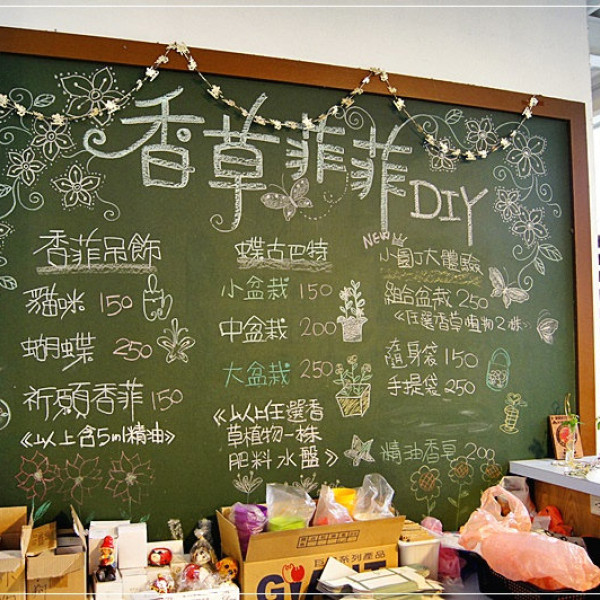 香草菲菲DIY
香菲吊飾
貓咪 150
蝴蝶 250
祈願香菲 150
《以上含5ml精油》
蝶古巴特
小盆栽 150
中盆栽 200
大盆栽 250
《以上任選香
草植物一株
肥料水盤》
NEW
小園丁大體驗
組合盆栽 250
《任選香草植物2株》
隨身袋 150
手提袋 250
精油香皂 200
系列產品